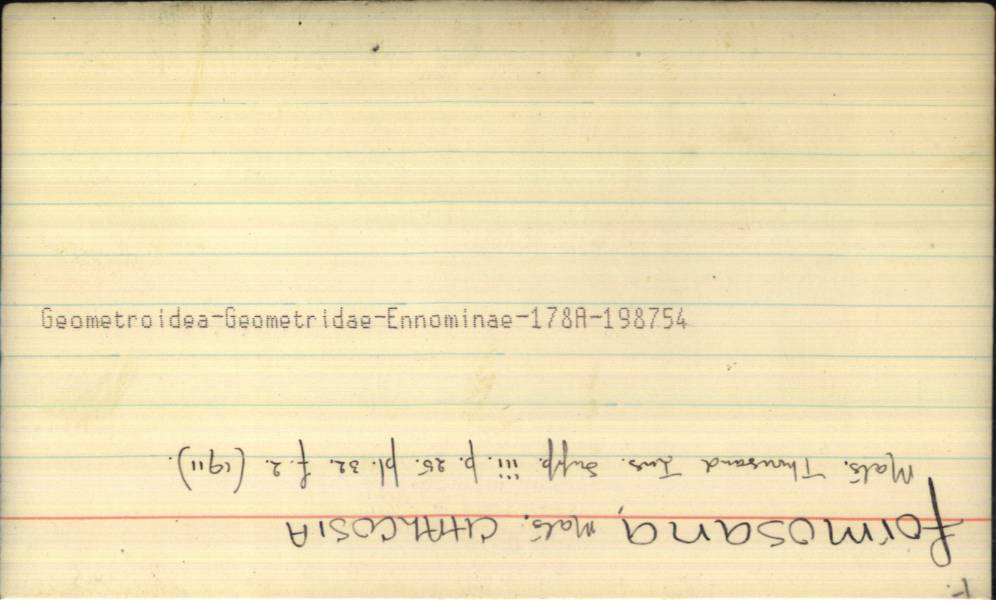 Geometroidea-Geometridae-Ennominae-178A-198754
F.
formosana, Mats. CHALCOSIA
Mats. Thousand Ins. Supp. iii. p. 25. pl. 32. f. 2. (1911).